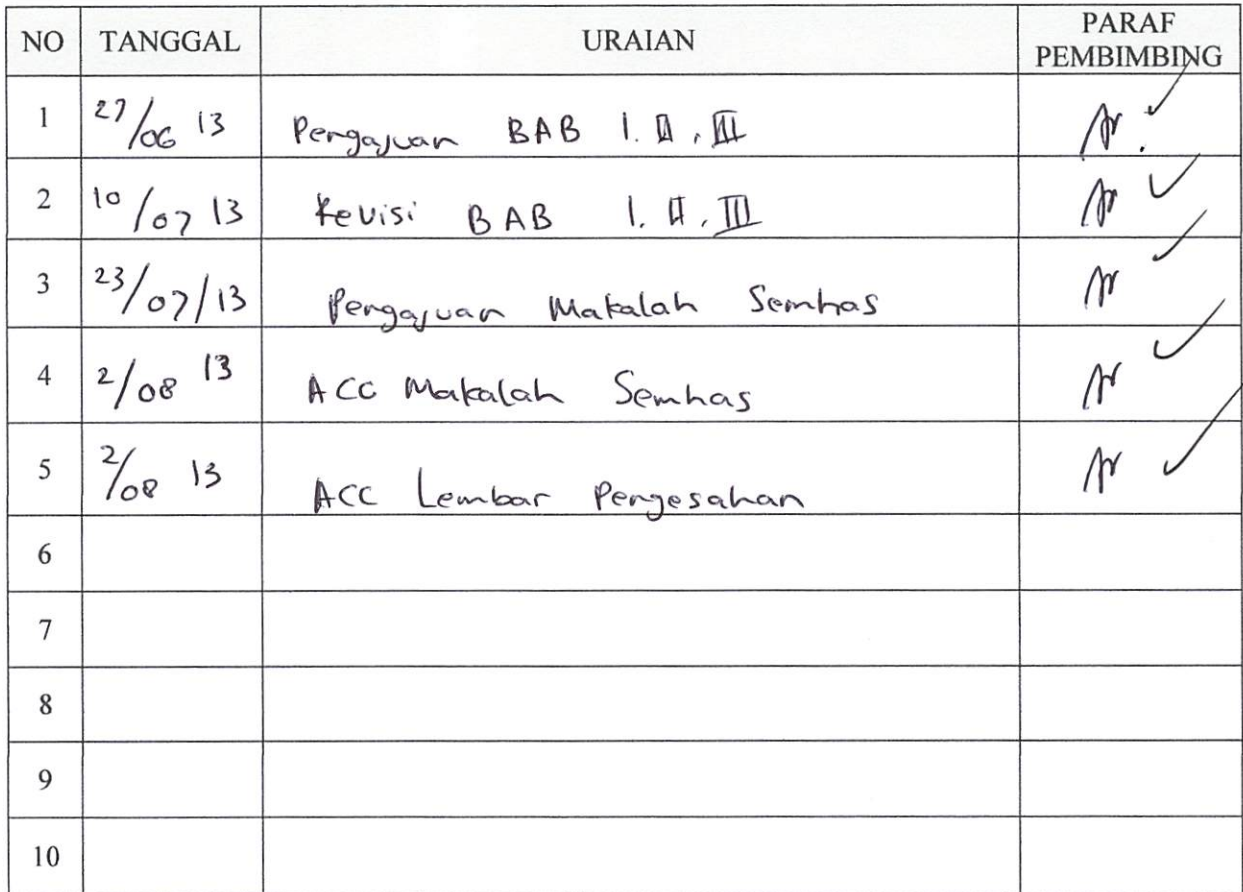 NO TANGGAL URAIAN PARAF PEMBIMBING
1 27/06 13 Pengajuan BAB I. II. III
2 10/07 13 Revisi BAB I. II. III
3 23/07/13 Pengajuan Makalah Semhas
4 2/08 13 ACC Makalah Semhas
5 2/08 13 ACC Lembar Pengesahan
6
7
8
9
10